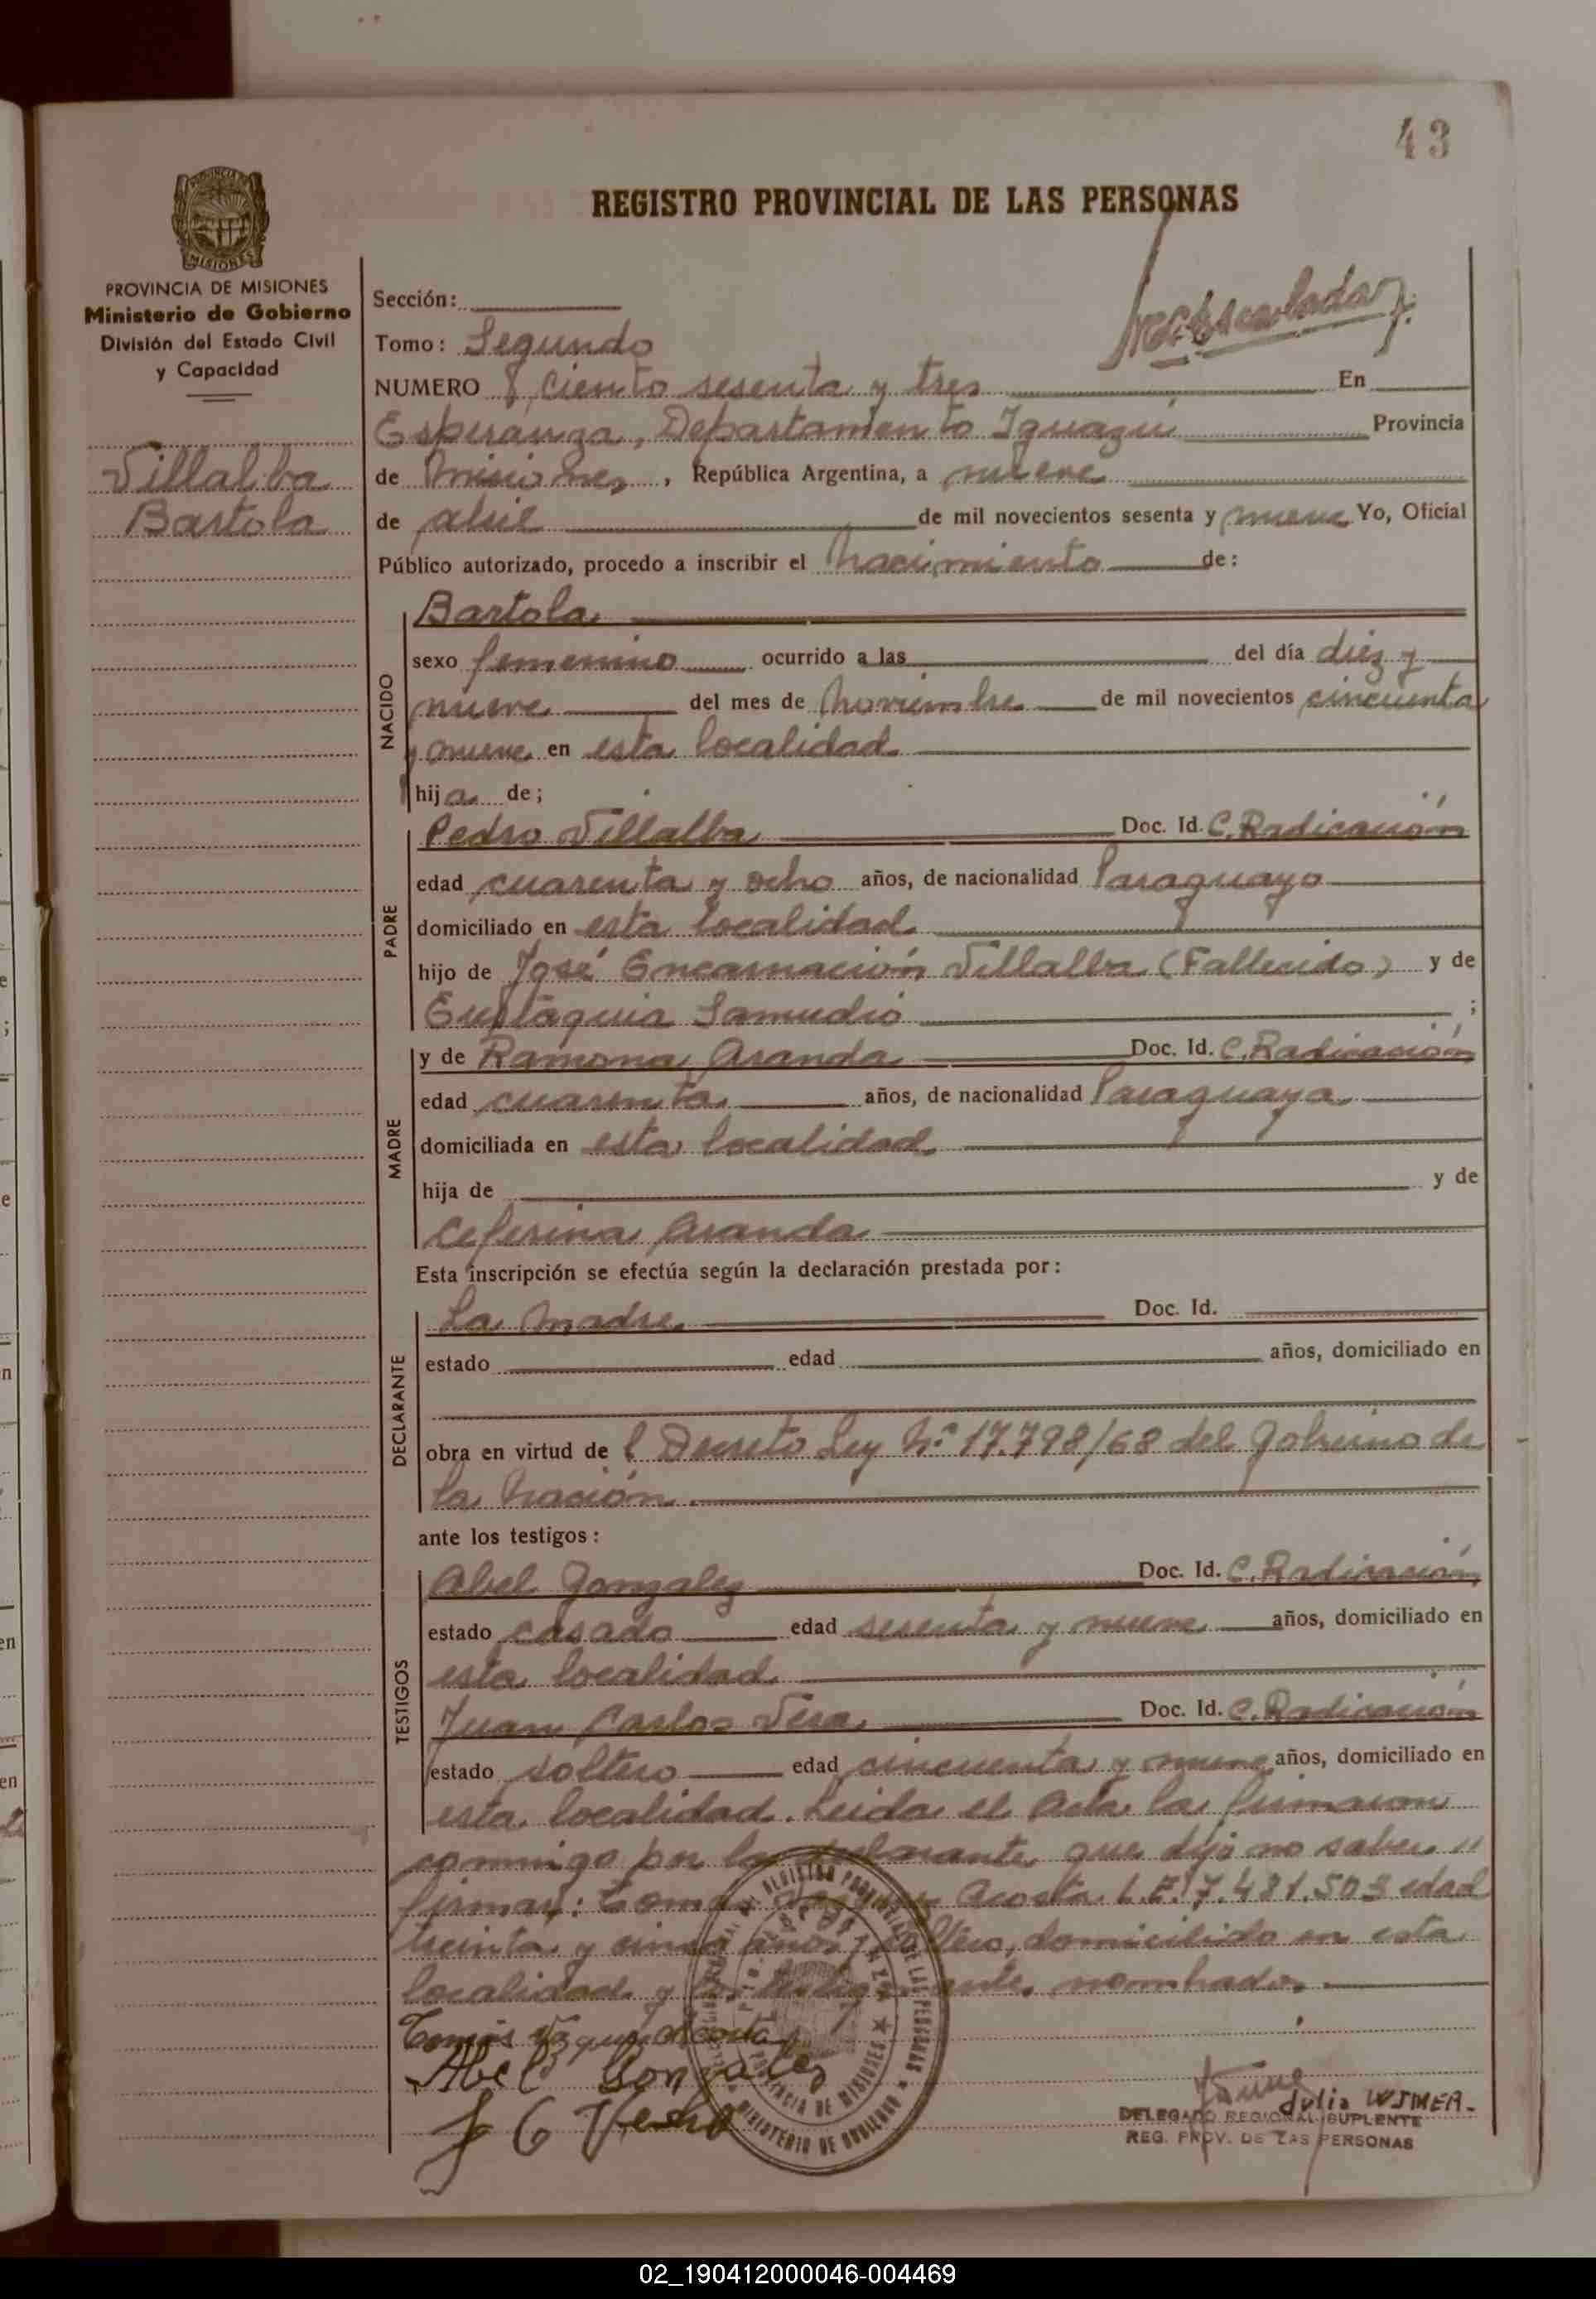 43
REGISTRO PROVINCIAL DE LAS PERSONAS
PROVINCIA DE MISIONES
Ministerio de Gobierno
División del Estado Civil
y Capacidad
Villalba
Bartola
Sección:
Tomo: Segundo
NUMERO ciento sesenta y tres En
Esperanza, Departamento Iguazú Provincia
de Misiones, República Argentina, a nueve
de abril de mil novecientos sesenta y nueve Yo, Oficial
Público autorizado, procedo a inscribir el nacimiento de:
NACIDO
Bartola
sexo femenino ocurrido a las del día diez y
nueve del mes de noviembre de mil novecientos cincuenta
y nueve en esta localidad
hija de;
PADRE
Pedro Villalba Doc. Id. C. Radicación
edad cuarenta y ocho años, de nacionalidad Paraguayo
domiciliado en esta localidad
hijo de José Encarnación Villalba (Fallecido) y de
Eustaquia Samudio ;
MADRE
y de Ramona Aranda Doc. Id. C. Radicación
edad cuarenta años, de nacionalidad Paraguaya
domiciliada en esta localidad
hija de y de
Ceferina Aranda
Esta inscripción se efectúa según la declaración prestada por:
DECLARANTE
La Madre Doc. Id.
estado edad años, domiciliado en
obra en virtud de l Decreto Ley Nº 17.798/68 del Gobierno de
la Nación
ante los testigos:
TESTIGOS
Abel Gonzalez Doc. Id. C. Radicación
estado casado edad sesenta y nueve años, domiciliado en
esta localidad
Juan Carlos Vera Doc. Id. C. Radicación
estado soltero edad cincuenta y nueve años, domiciliado en
esta localidad. Leida el Acta la firmaron
conmigo por la declarante que dijo no saber
firmar: Acosta L.E. 7.481.503 edad
treinta y cinco años, soltero, domicilido en esta
localidad y los testigos antes nombrados
Acosta
Abel Gonzalez
DELEGADO REGIONAL SUPLENTE
REG. PROV. DE LAS PERSONAS
02_190412000046-004469